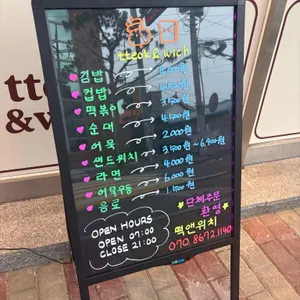 tteok & wich
김밥
컵밥 4500원
떡볶이 3500원
순대 4500원
어묵 2.000원
샌드위치 3500원~6.900원
라면 4.000원
어묵우동 6.000원
음료 1.500원
단체주문
환영
OPEN HOURS
OPEN 07:00
CLOSE 21:00
떡앤위치
070.8672.1140
tte
&w